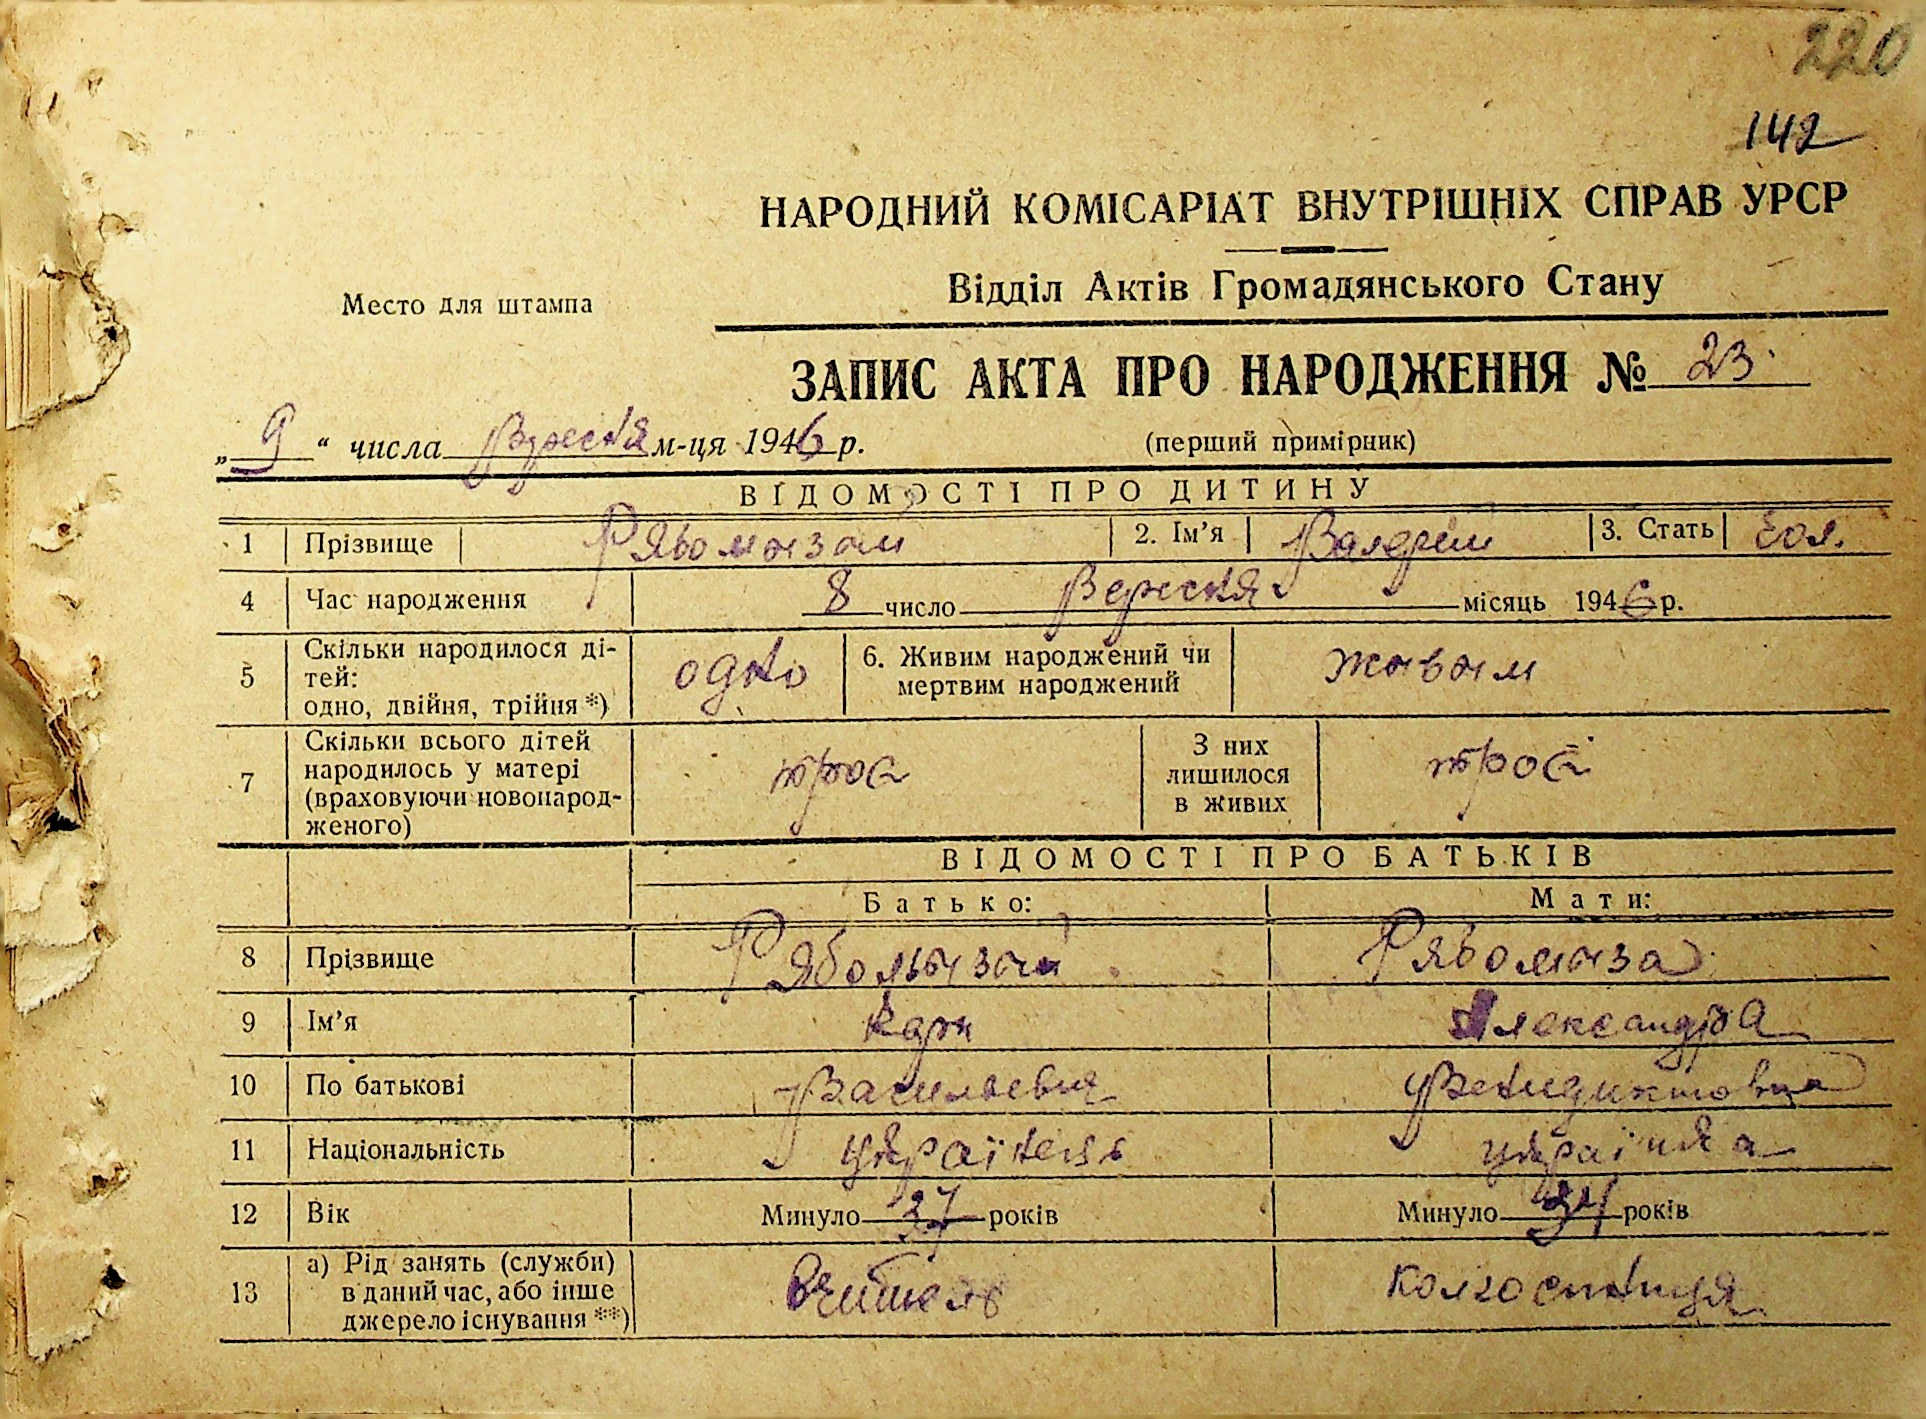 220
142
НАРОДНИЙ КОМІСАРІАТ ВНУТРІШНІХ СПРАВ УРСР
Відділ Актів Громадянського Стану
Место для штампа
ЗАПИС АКТА ПРО НАРОДЖЕННЯ № 23
„9“ числа Вересня м-ця 1946 р.
(перший примірник)
ВІДОМОСТІ ПРО ДИТИНУ
1 Прізвище Рябомизай 2. Ім’я 3. Стать
4 Час народження 8 число Вересня місяць 1946 р.
5 Скільки народилося ді-
тей:
одно, двійня, трійня *) одно 6. Живим народжений чи
мертвим народжений живим
7 Скільки всього дітей
народилось у матері
(враховуючи новонарод-
женого) троє З них
лишилося
в живих троє
ВІДОМОСТІ ПРО БАТЬКІВ
Батько: Мати:
8 Прізвище Рябомизай Рябомиза
9 Ім’я Александра
10 По батькові Васильевич Венидиктовна
11 Національність українець українка
12 Вік Минуло 37 років Минуло 34 років
13 а) Рід занять (служби)
в даний час, або інше
джерело існування **) вчитель колгоспниця